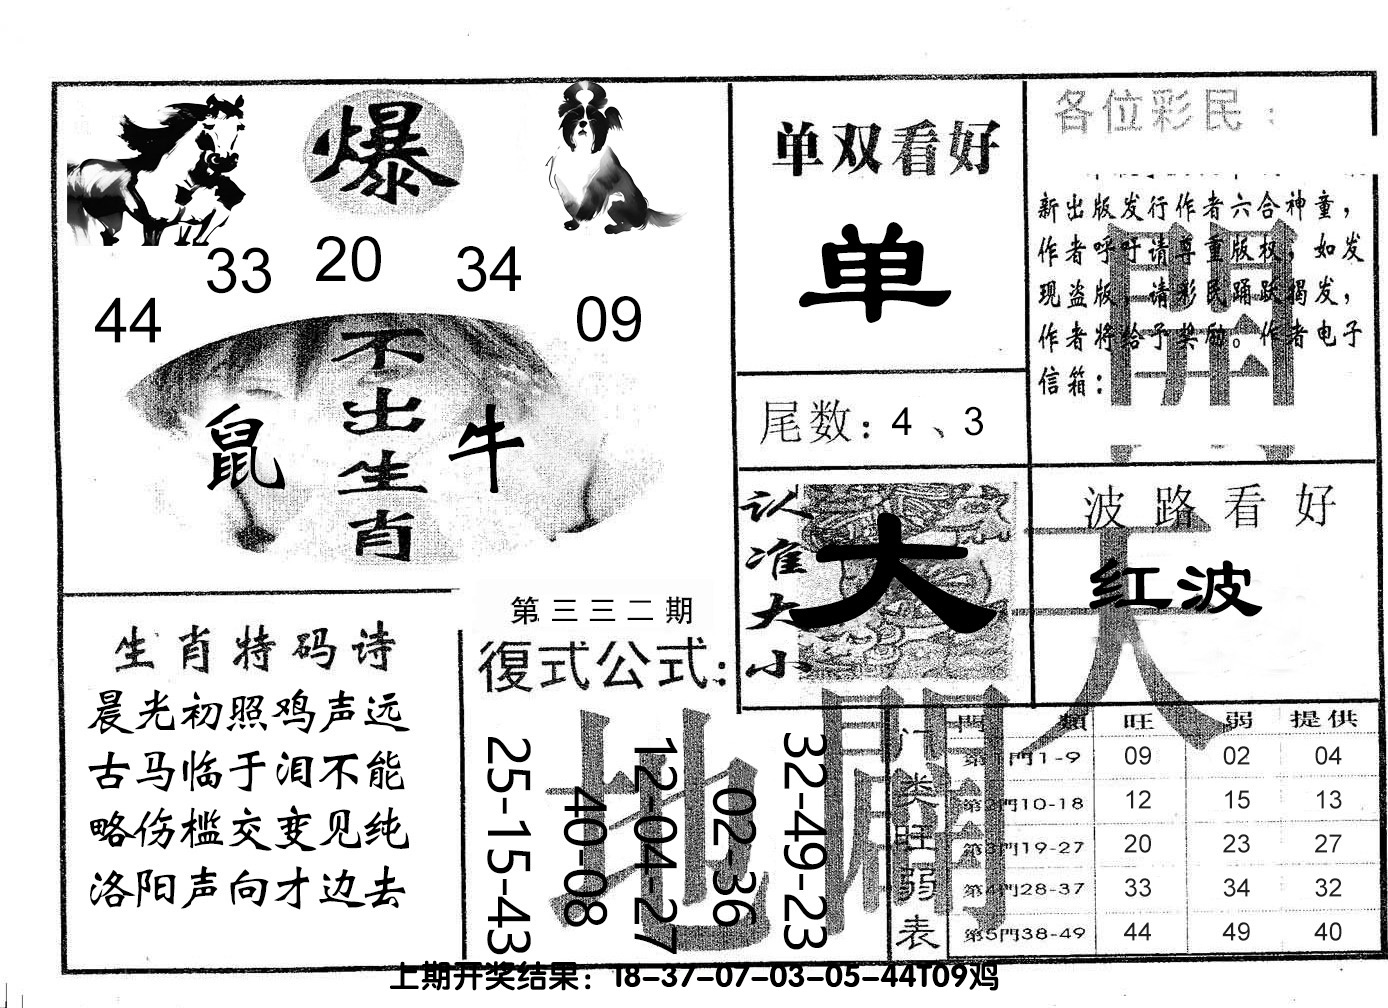 爆
33
20
34
44
09
不出生肖
鼠
牛
单双看好
单
尾数：4、3
各位彩民：
新出版发行作者六合神童，
作者呼吁请尊重版权，如发
现盗版，请彩民踊跃揭发，
作者将给予奖励。作者电子
信箱：
開
认准大小
大
波路看好
红波
天
生肖特码诗
晨光初照鸡声远
古马临于泪不能
略伤槛交变见纯
洛阳声向才边去
第三三二期
復式公式：
25-15-43
40-08
12-04-27
02-36
32-49-23
地
開
门类旺弱表
門 類 旺 弱 提供
第1門1-9 09 02 04
第2門10-18 12 15 13
第3門19-27 20 23 27
第4門28-37 33 34 32
第5門38-49 44 49 40
上期开奖结果：18-37-07-03-05-44T09鸡